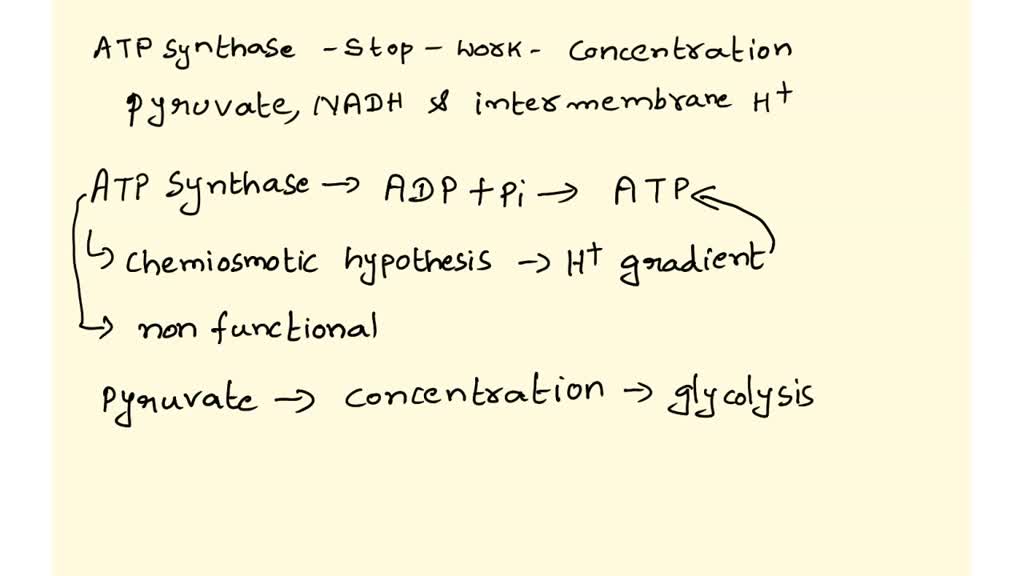 ATP synthase - Stop - Work - Concentration
pyruvate, NADH & intermembrane H+
ATP synthase → ADP + Pi → ATP
↳ Chemiosmotic hypothesis → H+ gradient
→ non functional
pyruvate → concentration → glycolysis